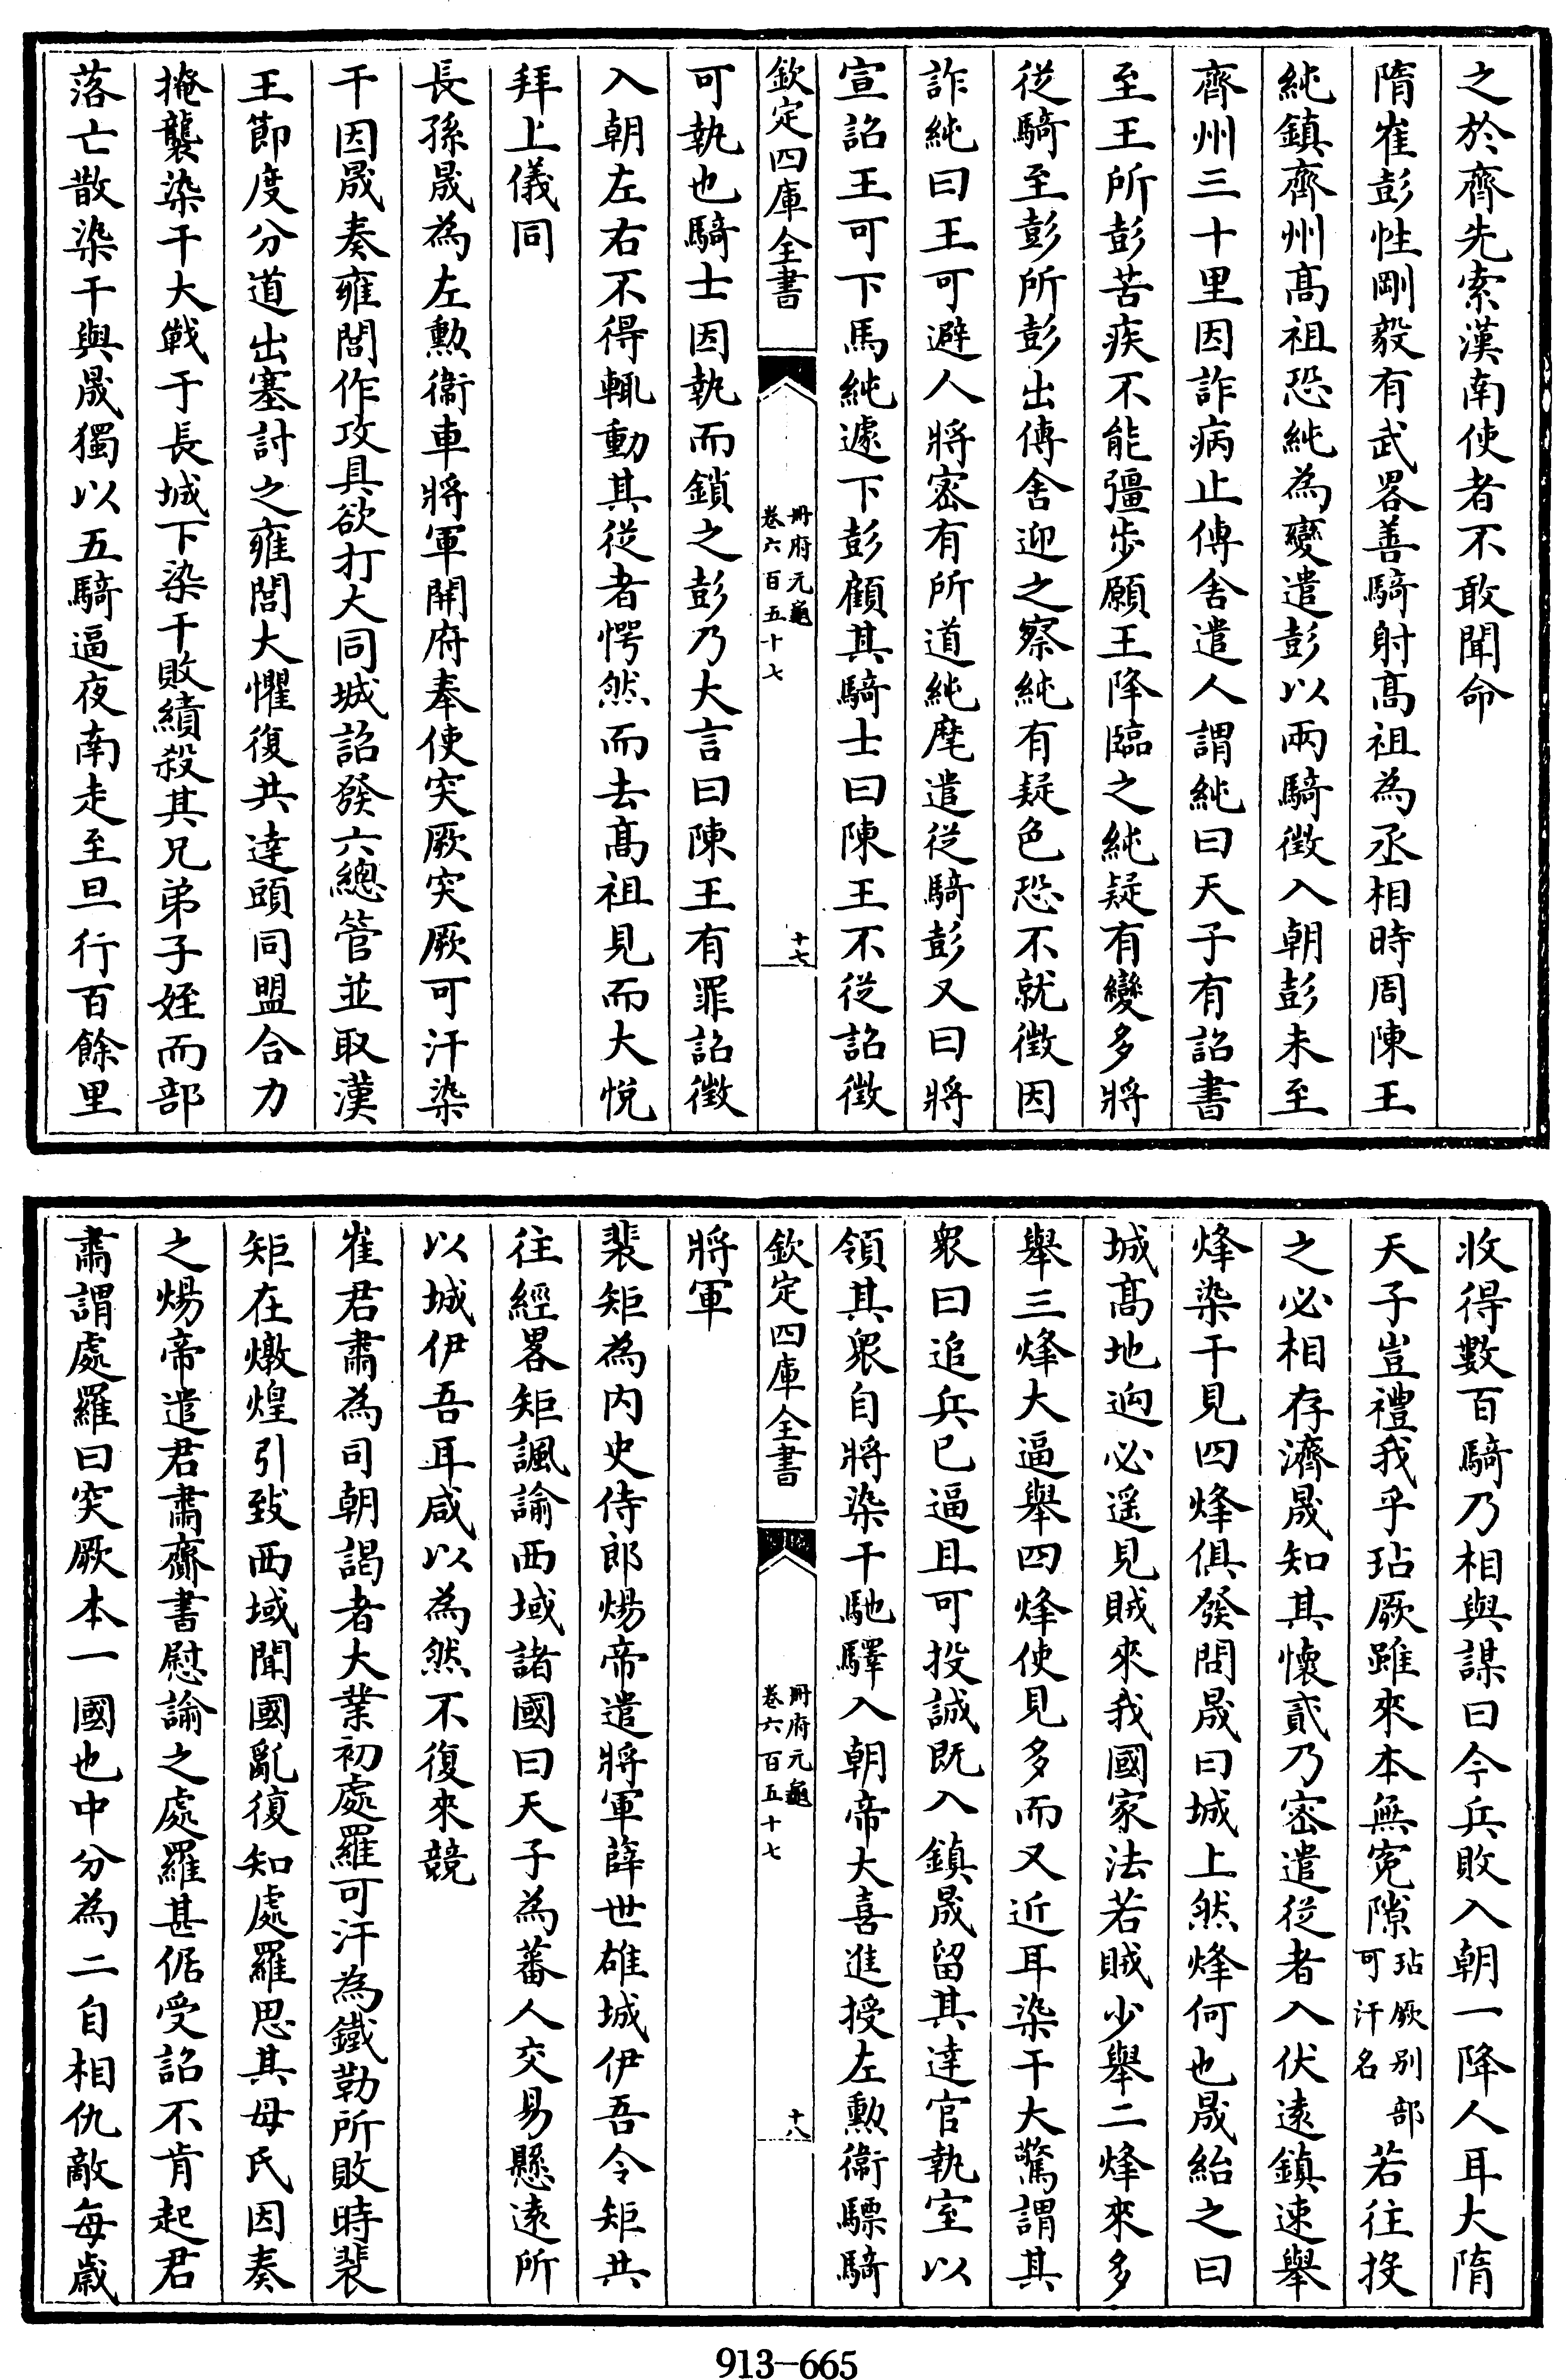 之於齊先索漢南使者不敢聞命
隋崔彭性剛毅有武畧善騎射髙祖為丞相時周陳王
純鎮齊州髙祖恐純為變遣彭以兩騎徴入朝彭未至
齊州三十里因詐病止傳舎遣人謂純曰天子有詔書
至王所彭苦疾不能彊步願王降臨之純疑有變多將
從騎至彭所彭出傳舎迎之察純有疑色恐不就徴因
詐純曰王可避人將宻有所道純麾遣從騎彭又曰將
宣詔王可下馬純遽下彭顧其騎士曰陳王不從詔徴
欽定四庫全書
冊府元龜
卷六百五十七
十七
可執也騎士因執而鎖之彭乃大言曰陳王有罪詔徴
入朝左右不得輒動其從者愕然而去髙祖見而大悅
拜上儀同
長孫晟為左勲衞車將軍開府奉使突厥突厥可汗染
干因晟奏雍閭作攻具欲打大同城詔發六總管並取漢
王節度分道出塞討之雍閭大懼復共達頭同盟合力
掩襲染干大戰于長城下染干敗績殺其兄弟子姪而部
落亡散染干與晟獨以五騎逼夜南走至旦行百餘里
收得數百騎乃相與謀曰今兵敗入朝一降人耳大隋
天子豈禮我乎玷厥雖來本無寃隙玷厥别部可汗名若往投
之必相存濟晟知其懷貳乃宻遣從者入伏逺鎮速舉
烽染干見四烽俱發問晟曰城上然烽何也晟紿之曰
城髙地逈必遥見賊來我國家法若賊少舉二烽來多
舉三烽大逼舉四烽使見多而又近耳染干大驚謂其
衆曰追兵已逼且可投誠既入鎮晟留其達官執室以
領其衆自將染干馳驛入朝帝大喜進授左勲衞驃騎
欽定四庫全書
冊府元龜
卷六百五十七
十八
將軍
裴矩為内史侍郎煬帝遣將軍薛世雄城伊吾令矩共
往經畧矩諷諭西域諸國曰天子為蕃人交易懸逺所
以城伊吾耳咸以為然不復來競
崔君肅為司朝謁者大業初處羅可汗為鐵勒所敗時裴
矩在燉煌引致西域聞國亂復知處羅思其母氏因奏
之煬帝遣君肅齎書慰諭之處羅甚倨受詔不肯起君
肅謂處羅曰突厥本一國也中分為二自相仇敵每歲
913-665